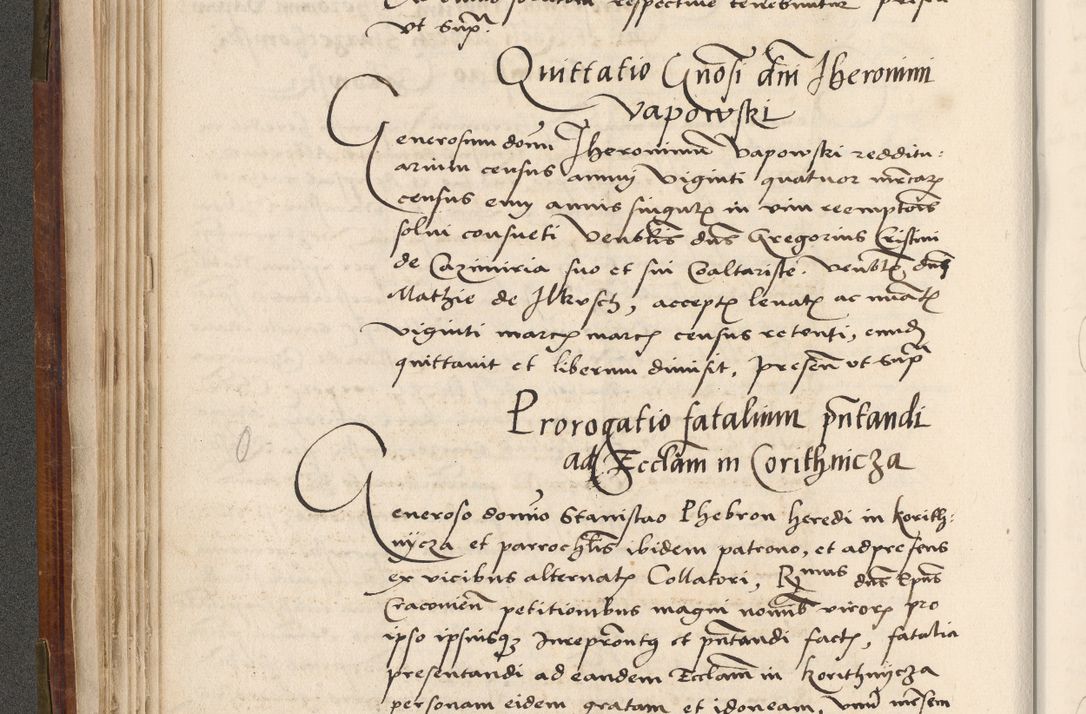 ut supra.
Quittatio Gnosi dni Iheronimi
Vapowski
Generosum domnum Iheronimum Vapowski redditu:
arium census annui viginti quatuor mrcarum
census eiuy annis singulis in vim reemptois
solui consueti Venblis dns Gregorius Cristini
de Cazimiria suo et sui Coaltariste. Venblis dni
Mathie de Ilkusch, acceptis levatis ac nuatis
viginti marcis marcis census retenti, eundem
quittavit et liberum dimisit, presen ut supra
Prorogatio fatalium pntandi
ad Ecclam in Corithnicza
Generoso domino Stanislao Phebron heredi in korith:
nycza et parrochlis ibidem patrono, et ad presens
ex vicibus alternatis Collatori, Rmus dns Epus
Cracovien petitionibus magni nominis virorum pro
ipso ipsiusque pntandi factis, fatalia
presentandi ad eandem Ecclam in korithnycza
personam eidem gratam et idoneam, unum mensem